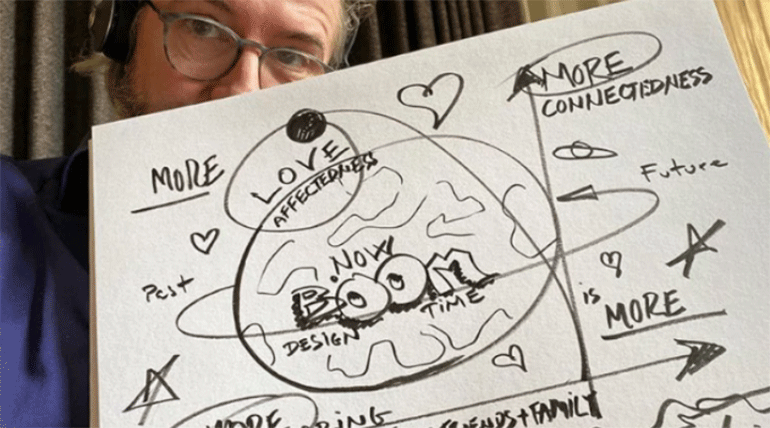 MORE
CONNECTEDNESS
MORE
LOVE
AFFECTEDNESS
Future
NOW
Past
BOOM
TIME
DESIGN
is
MORE
MORE
FRIENDS + FAMILY